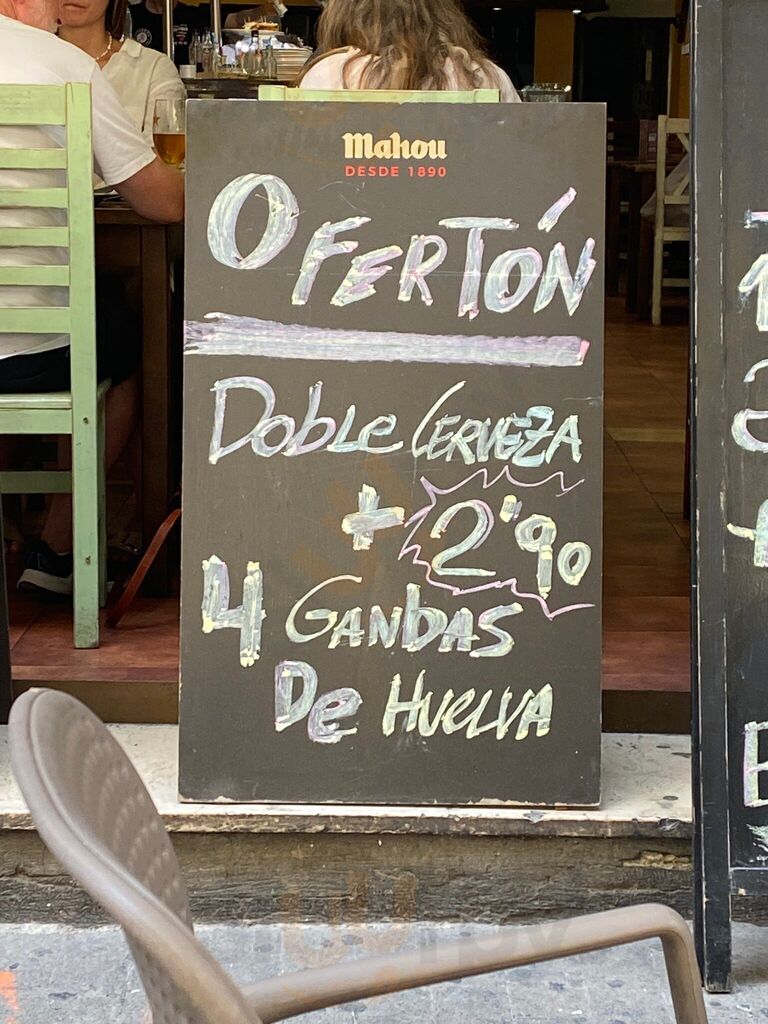 Mahou
DESDE 1890
OFERTÓN
Doble CERVEZA
+ 2'90
4 GANbAS
De HUELVA